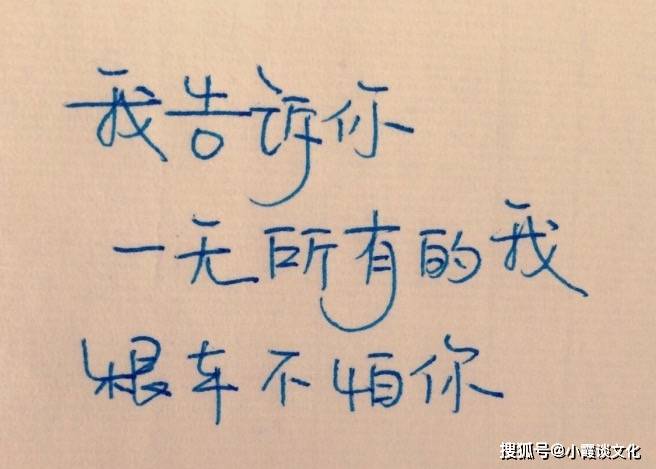 我告诉你
一无所有的我
根车不怕你
搜狐号@小霞谈文化